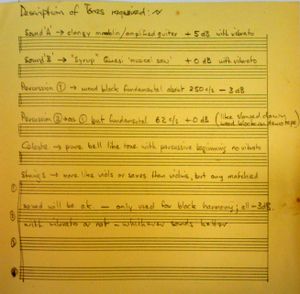 Description of Tones required :~
Sound 'A' → clangy mandolin/amplified guitar + 5 dB with vibrato
Sound 'B' → "Syrup" Quasi 'musical saw' + 0 dB with vibrato
Percussion ① → wood block fundamental about 250 c/s – 3 dB
Percussion ② → as ① but fundamental 62 c/s + 0 dB (like slowed down
wood block on stereo tape)
Celeste → pure bell like tone with percussive beginning no vibrato
Strings → more like viols or saws than violins, but any matched
sound will be ok. — only used for block harmony; all – 3 dB.
with vibrato or not – whichever sounds better